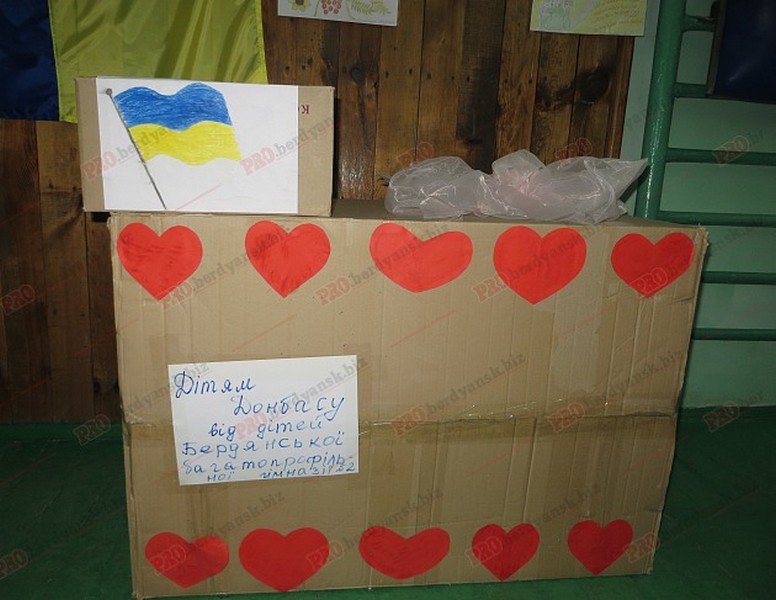 Дітям
Донбасу
від дітей
Бердянської
багатопрофіль-
ної гімназії 2
PRO.berdyansk.biz